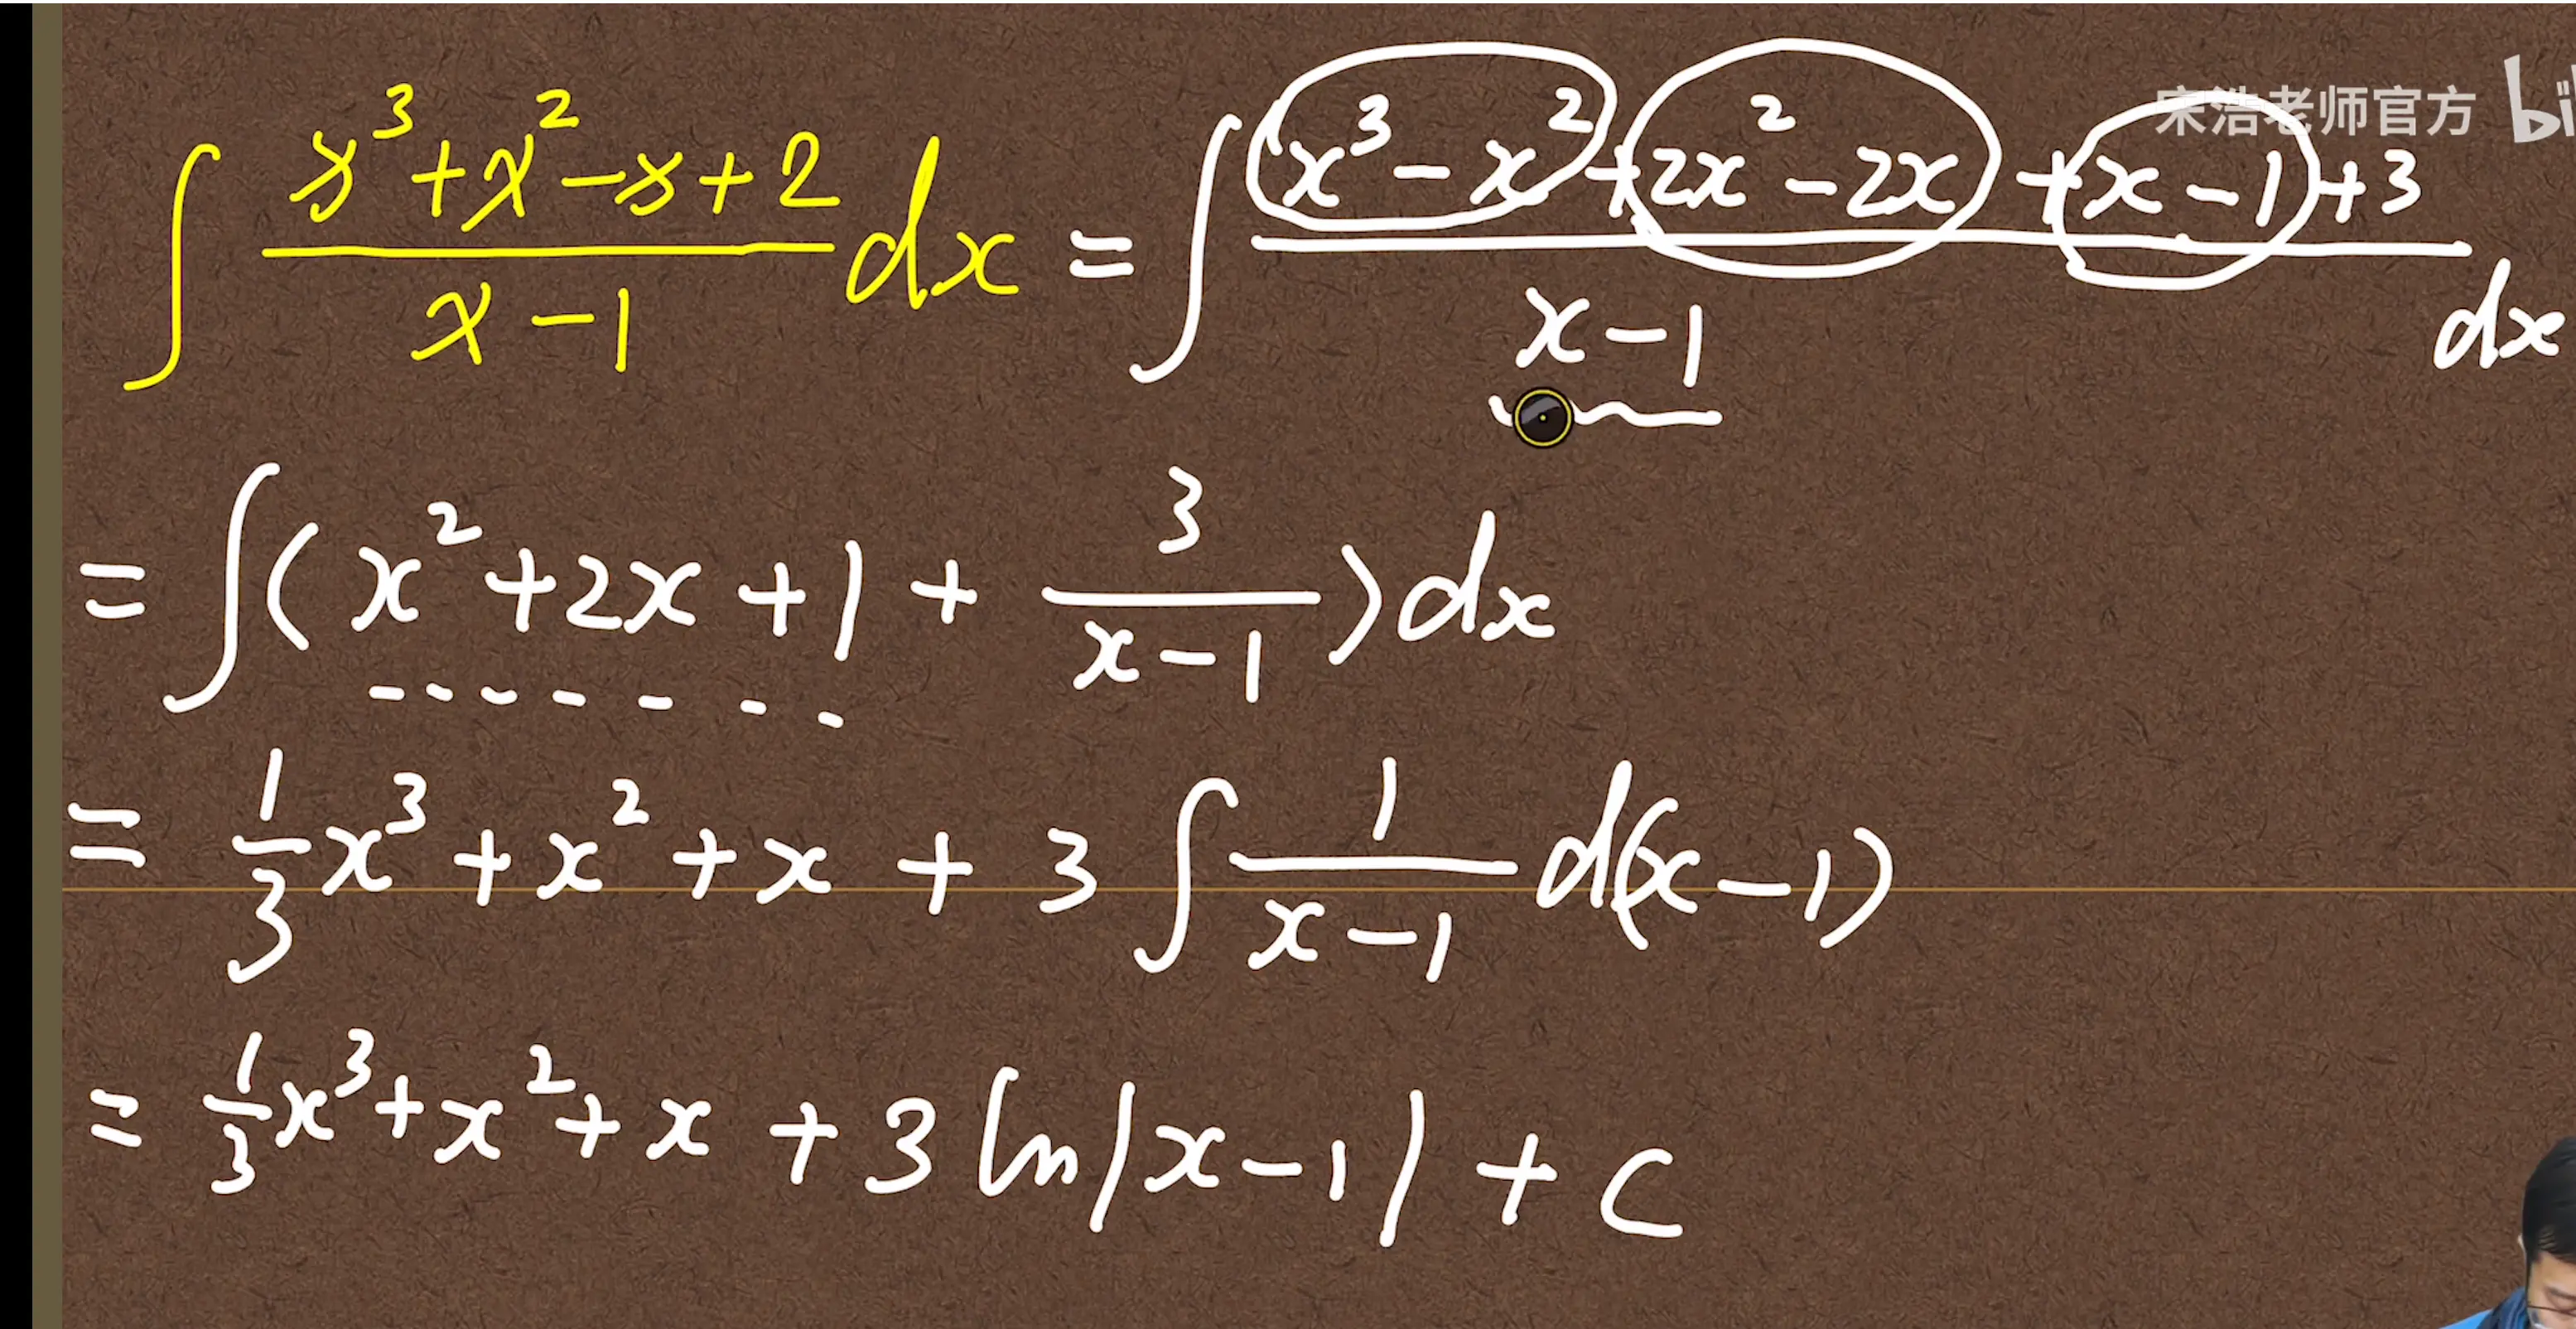 宋浩老师官方 bil
∫ (x³+x²-x+2)/(x-1) dx = ∫ (x³-x²+2x²-2x+x-1+3)/(x-1) dx
= ∫( x²+2x+1 + 3/(x-1) ) dx
= 1/3 x³+x²+x + 3∫ 1/(x-1) d(x-1)
= 1/3 x³+x²+x + 3 ln|x-1| + C